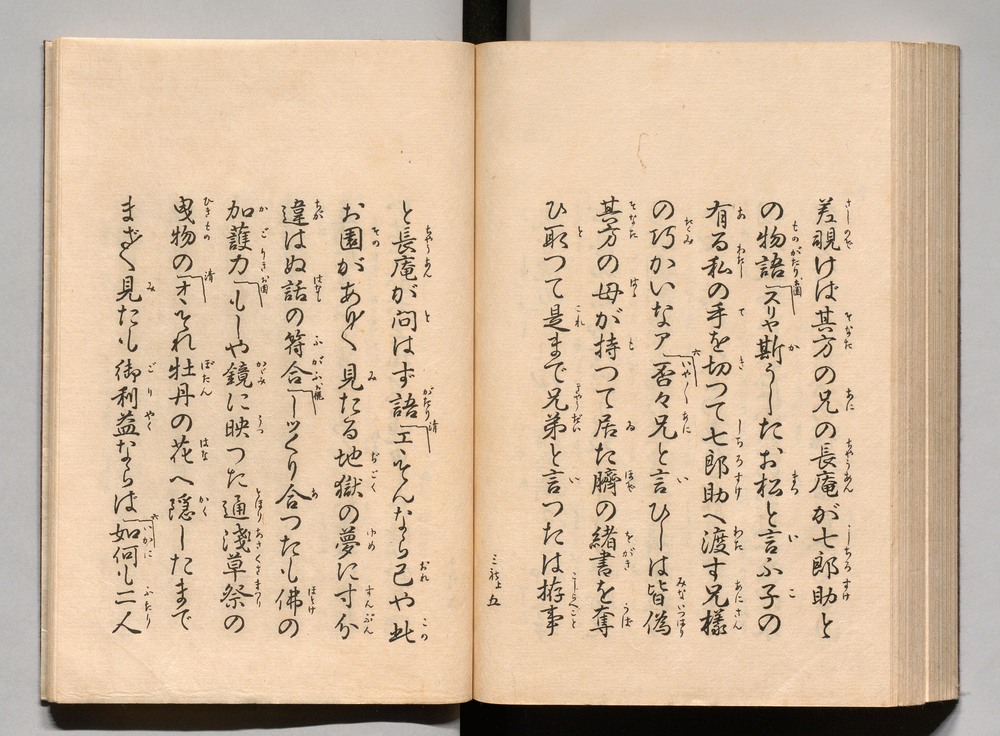 差覗けば其方の兄の長庵が七郎助と
の物語 お園 スリヤ斯うしたお松と言ふ子の
有る私の手を切つて七郎助へ渡す兄樣
の巧かいなア 六 いや〳〵否々兄と言ひしは皆偽
其方の母が持つて居た臍の緒書を奪
ひ取つて是まで兄弟と言つたは拵事
三社 五
と長庵が問はず語 清 エヽそんなら己や此
お園があり〳〵見たる地獄の夢に寸分
違はぬ話の符合 六 シツくり合つたも佛の
加護力 お園 もしや鏡に映つた通淺草祭の
曳物の 清 オヽそれ牡丹の花へ隱したまで
まざ〳〵見たも御利益ならば 六 如何にも二人